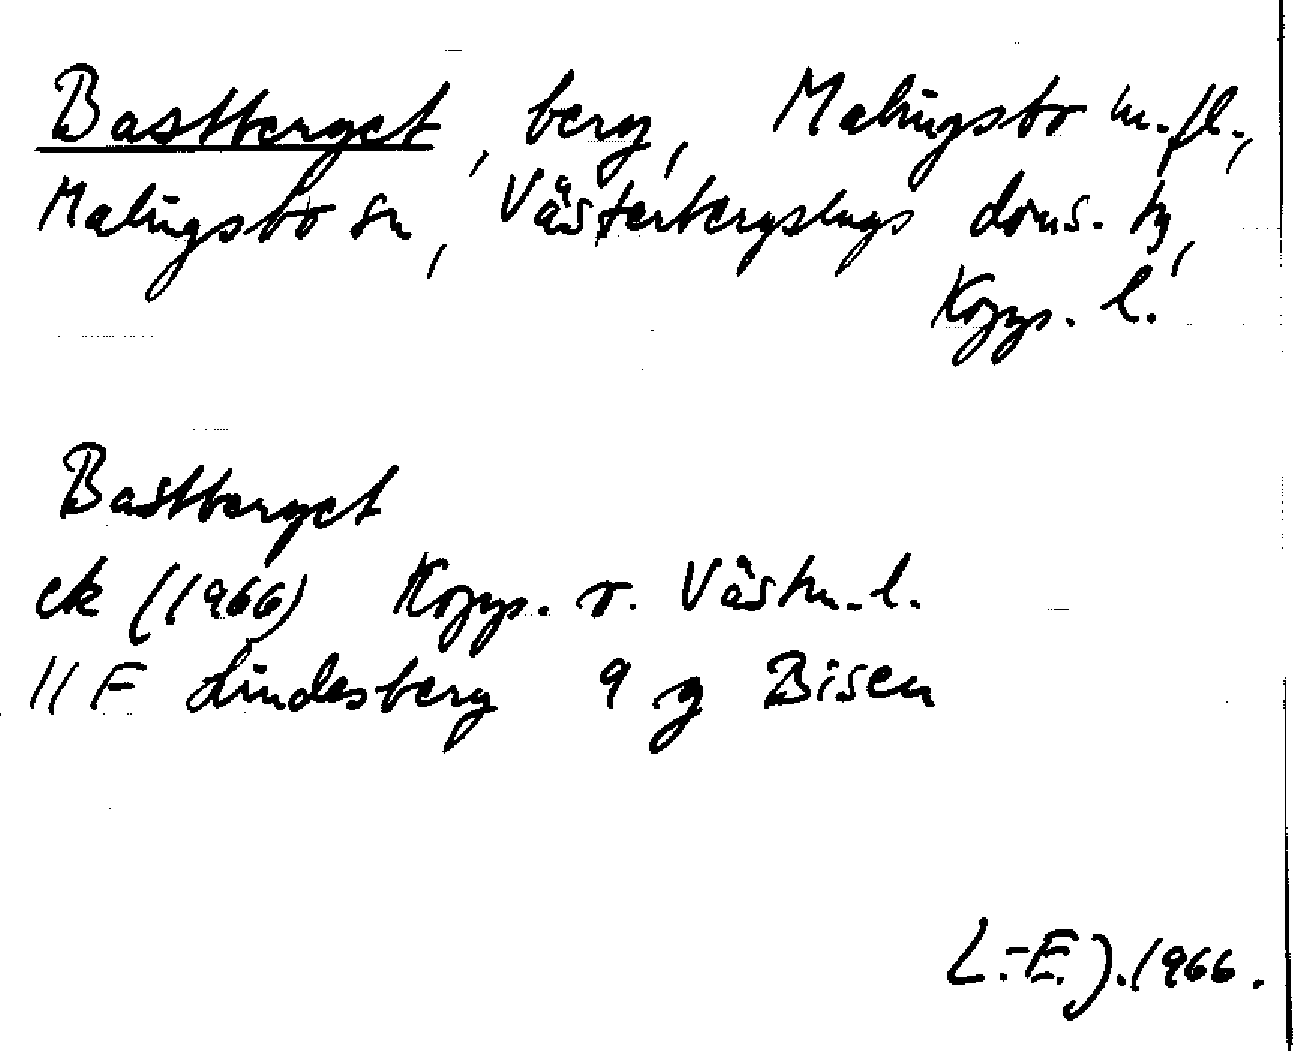 Bastberget, berg, Malingsbo m.fl.,
Malingsbo sn, Västerbergslags doms. tg,
Kopps. l.
Bastberget
ek (1966) Kopps. o. Västm. l.
11 F Lindesberg 9 g Bisen
L.-E. J. 1966.